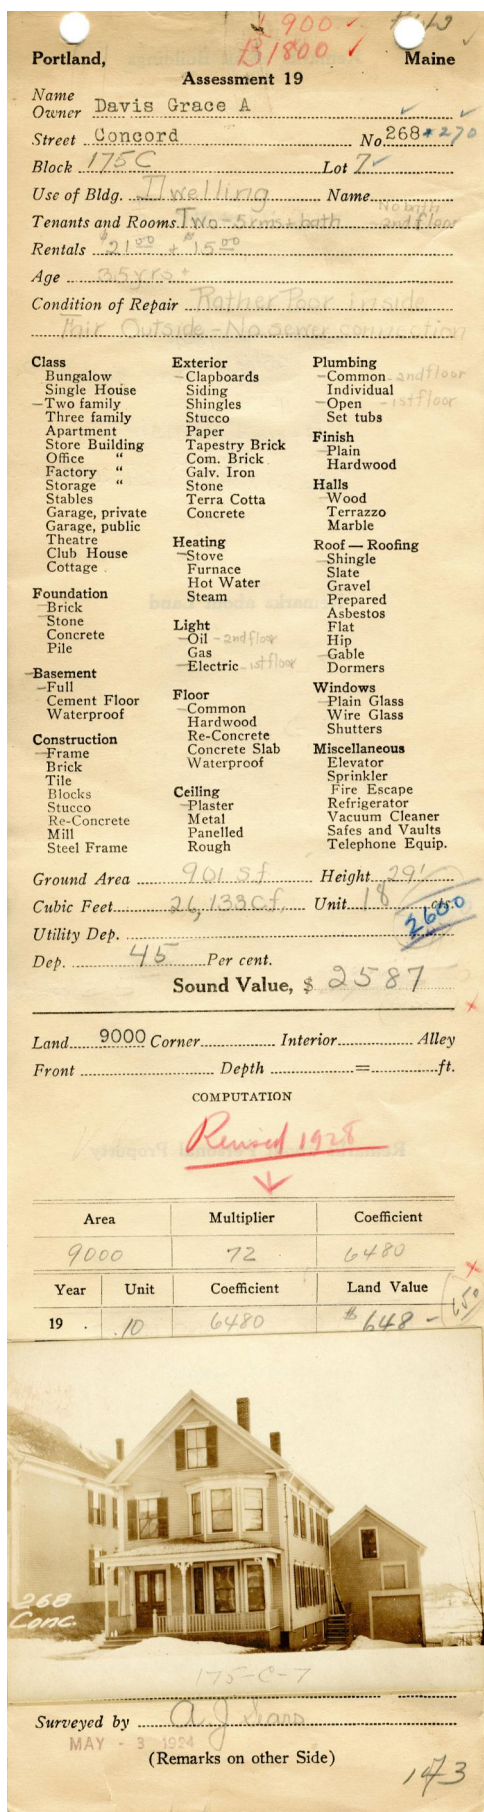 L 900 ✓
B 1800 ✓
Portland, Maine
Assessment 19
Name
Owner Davis Grace A
Street Concord No. 268 * 270
Block 175C Lot 7
Use of Bldg. Dwelling Name
No bath
Tenants and Rooms. Two - 5 rms + bath - 2nd floor
Rentals $21.00 + $15.00
Age 35 yrs +
Condition of Repair Rather Poor inside
Fair Outside - No sewer connection
Class
Bungalow
Single House
- Two family
Three family
Apartment
Store Building
Office "
Factory "
Storage "
Stables
Garage, private
Garage, public
Theatre
Club House
Cottage
Foundation
- Brick
- Stone
Concrete
Pile
- Basement
- Full
Cement Floor
Waterproof
Construction
- Frame
Brick
Tile
Blocks
Stucco
Re-Concrete
Mill
Steel Frame
Exterior
- Clapboards
Siding
Shingles
Stucco
Paper
Tapestry Brick
Com. Brick
Galv. Iron
Stone
Terra Cotta
Concrete
Heating
- Stove
Furnace
Hot Water
Steam
Light
- Oil - 2nd floor
Gas
- Electric - 1st floor
Floor
- Common
Hardwood
Re-Concrete
Concrete Slab
Waterproof
Ceiling
- Plaster
Metal
Panelled
Rough
Plumbing
- Common - 2nd floor
Individual
- Open - 1st floor
Set tubs
Finish
- Plain
Hardwood
Halls
- Wood
Terrazzo
Marble
Roof — Roofing
- Shingle
Slate
Gravel
Prepared
Asbestos
Flat
Hip
- Gable
Dormers
Windows
- Plain Glass
Wire Glass
Shutters
Miscellaneous
Elevator
Sprinkler
Fire Escape
Refrigerator
Vacuum Cleaner
Safes and Vaults
Telephone Equip.
Ground Area 901 sf Height 29'
Cubic Feet 26,133 cf. Unit 18 cts.
2600
Utility Dep.
Dep. 45 Per cent.
Sound Value, $ 2587
Land 9000 Corner Interior Alley
Front Depth = ft.
COMPUTATION
Revised 1928
Area Multiplier Coefficient
9000 72 6480
Year Unit Coefficient Land Value
19 . .10 6480 $648 - 650
268
Conc.
175-C-7
Surveyed by A J Sears
MAY - 3 1924
(Remarks on other Side)
173